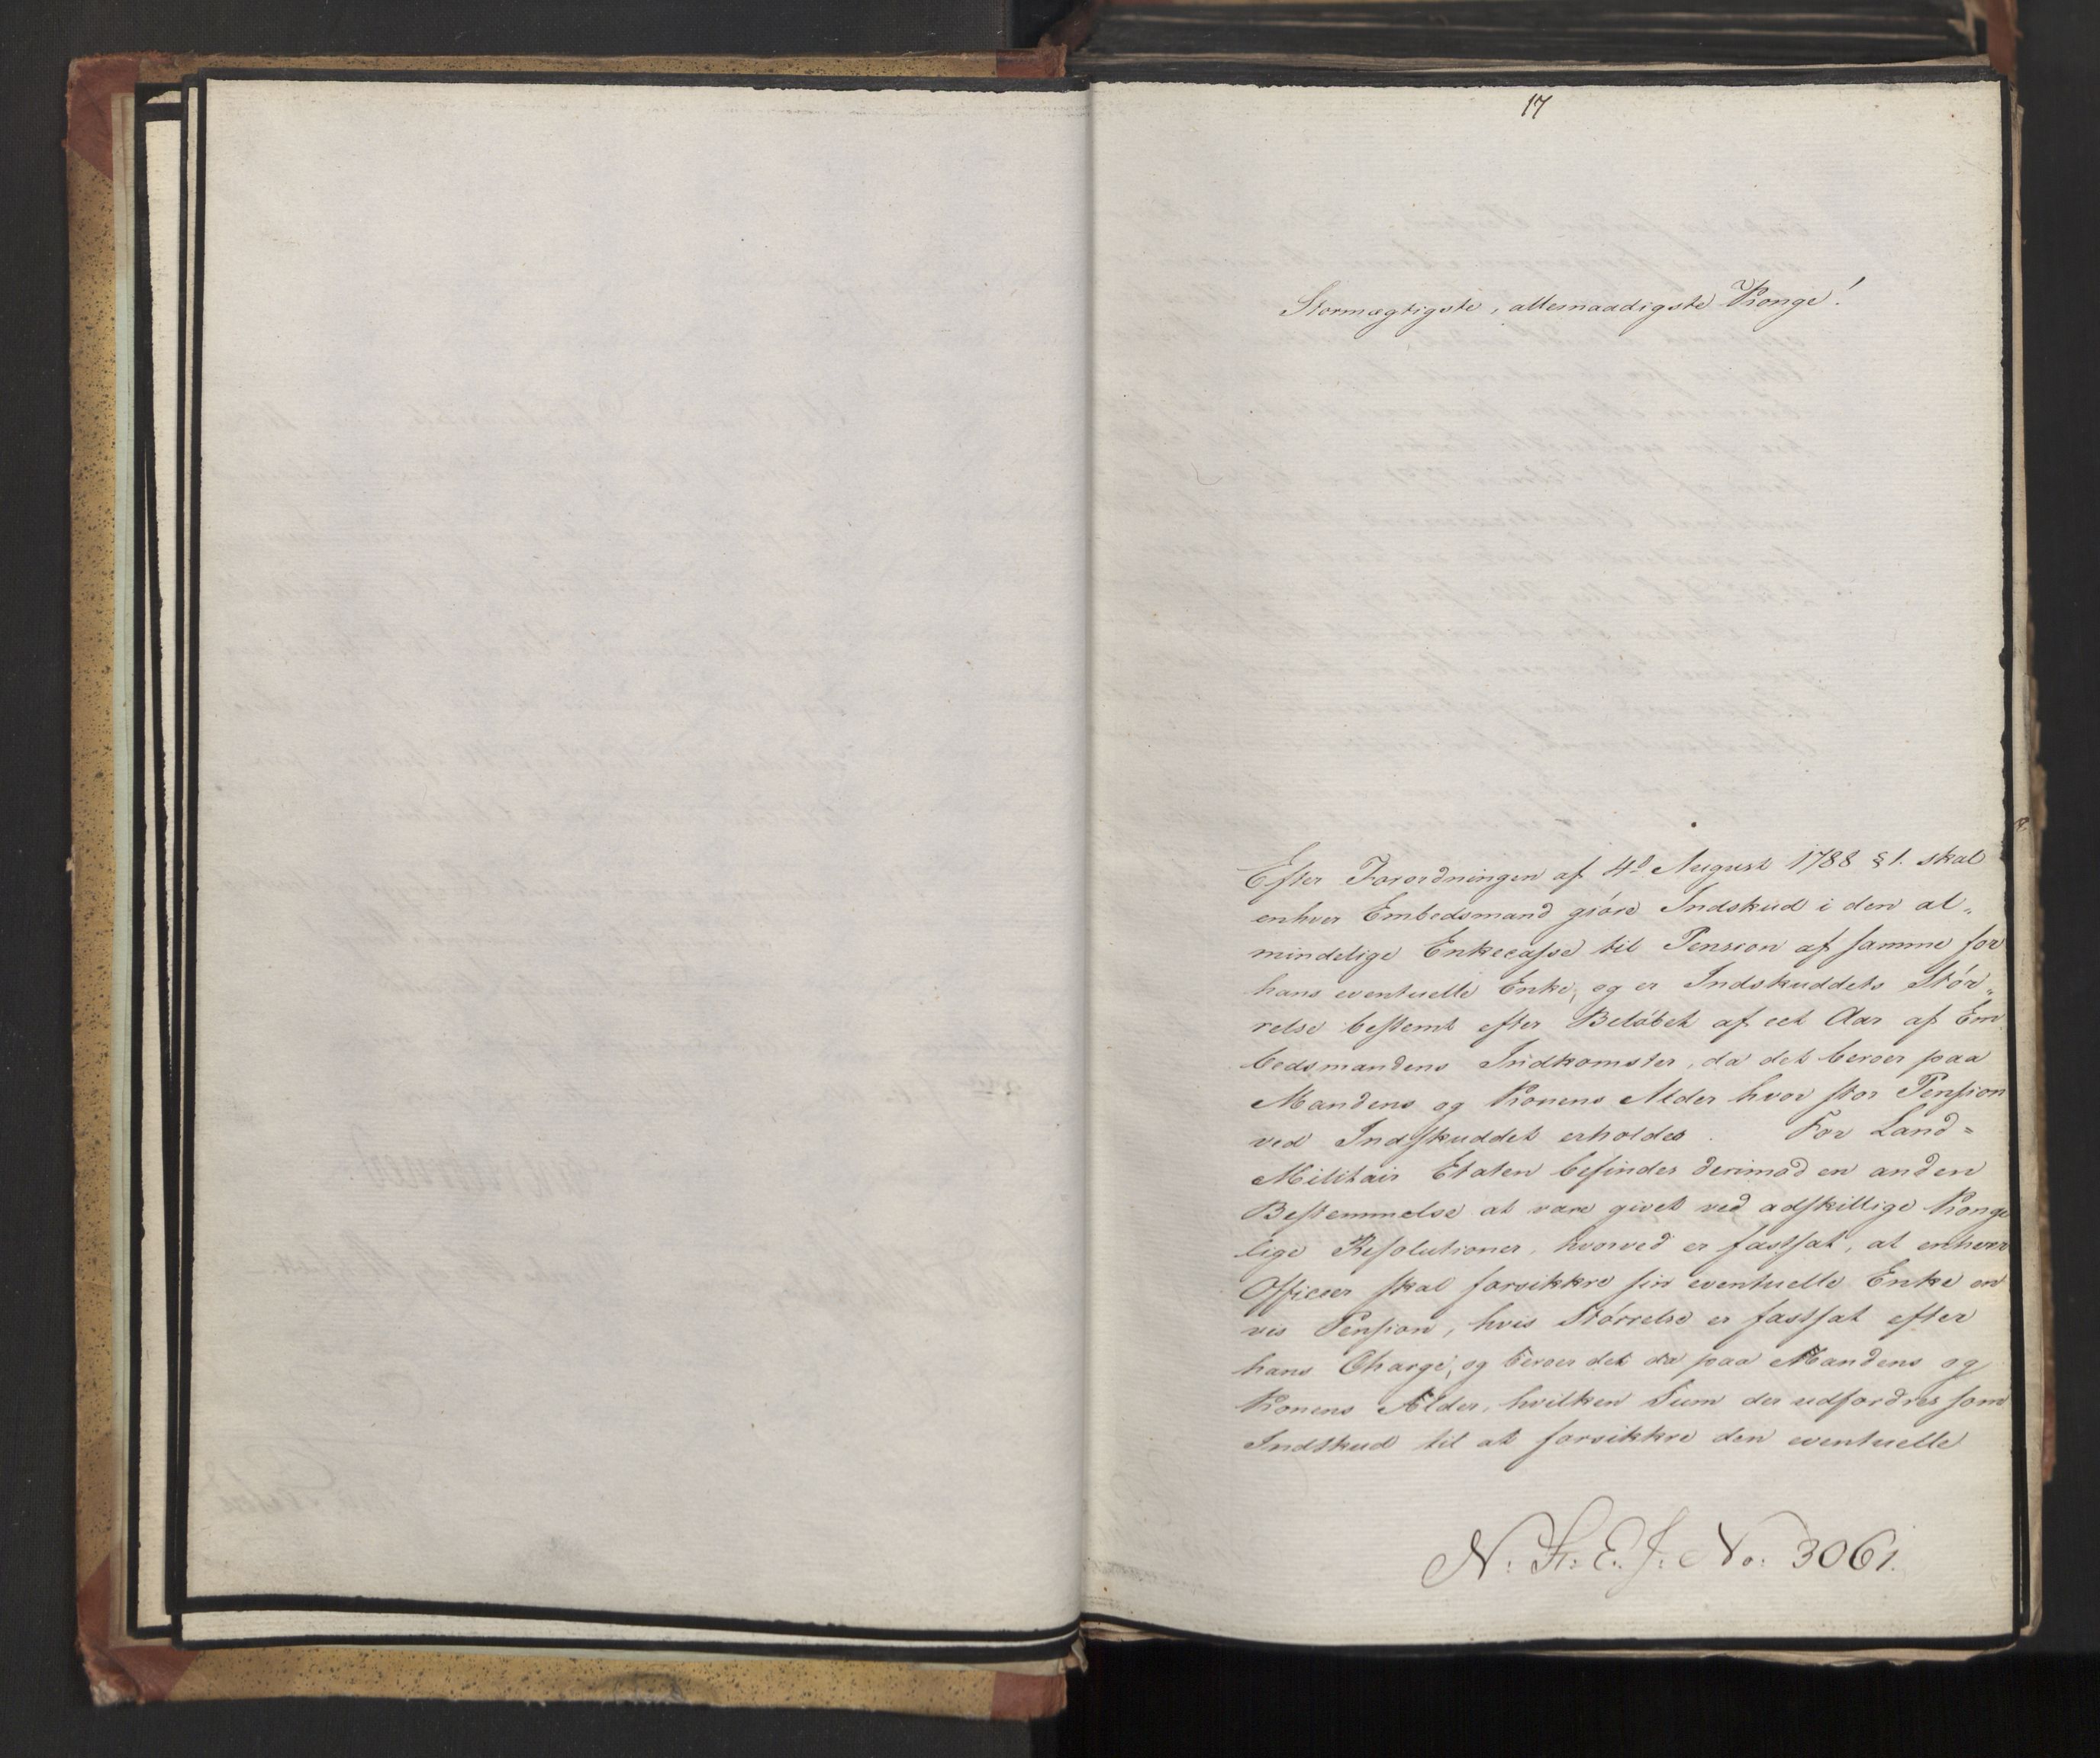 17
Stormægtigste, allernaadigste Konge!
Efter Forordningen af 4d August 1788 § 1. skal
enhver Embedsmand giöre Indskud i den al„
mindelige Enkecasse til Pension af samme for
hans eventuelle Enke, og er Indskuddets Stör„
relse bestemt efter Belöbet af eet Aar af Em
bedsmandens Indkomster, da det beroer paa
Mandens og Konens Alder hvor stor Pension
ved Indskuddet erholdes. For Land=
Militair Etaten befindes derimod en anden
Bestemmelse at være givet ved adskillige Konge
lige Resolutioner, hvorved er fastsat, at enhver
Officeer skal forsikkre sin eventuelle Enke en
vis Pension, hvis Störrelse er fastsat efter
hans Charge, og beroer det da paa Mandens og
Konens Alder, hvilken Sum der udfordres som
Indskud til at forsikkre den eventuelle
N. St: E. J: No: 3061.